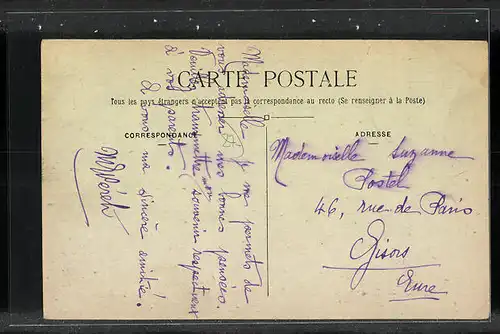 CARTE POSTALE
Tous les pays étrangers n'acceptent pas la correspondance au recto (Se renseigner à la Poste)
CORRESPONDANCE
ADRESSE
Mademoiselle
je me permets de
vous adresser mes bonnes pensées.
Veuillez transmettre mon souvenir respectueux
à vos parents.
à vous ma sincère amitié.
Mademoiselle Suzanne
Postel
46, rue de Paris
Gisors
Eure